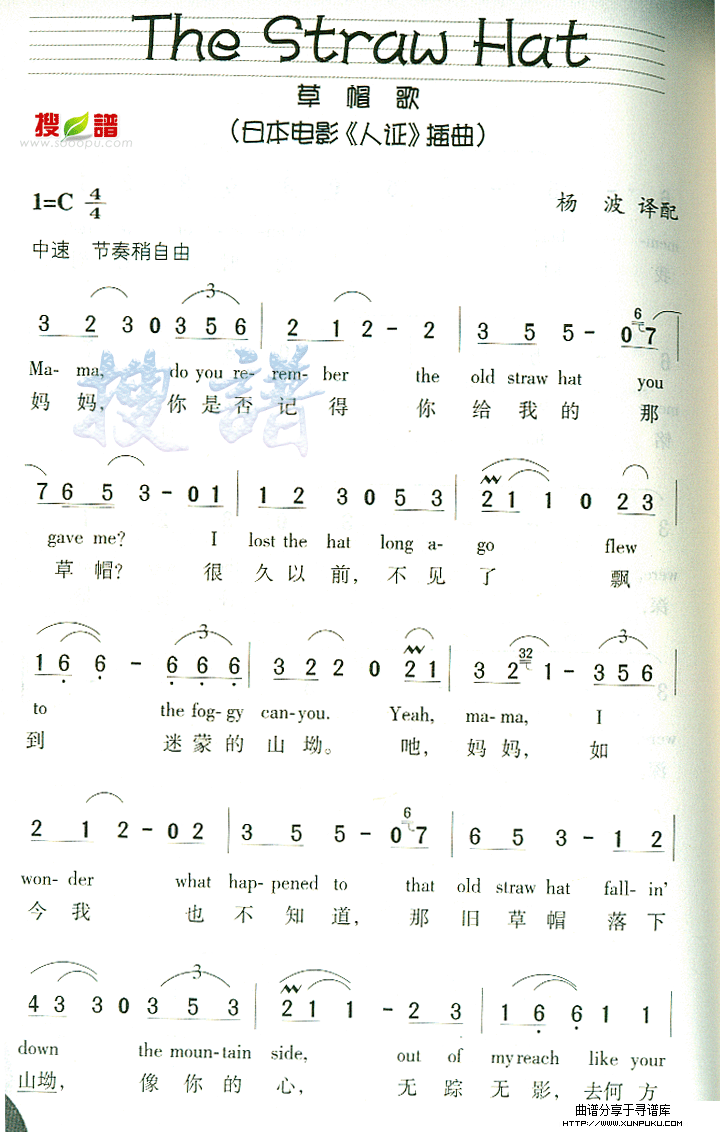 The Straw Hat
草 帽 歌
(日本电影《人证》插曲)
搜 谱
www.sooopu.com
1=C 4/4
杨 波 译配
中速 节奏稍自由
3 2 3 0 3 5 6 | 2 1 2 - 2 | 3 5 5 - 0 7
Ma- ma, do you re- mem- ber the old straw hat you
妈 妈, 你 是 否 记 得 你 给 我 的 那
7 6 5 3 - 0 1 | 1 2 3 0 5 3 | 2 1 1 0 2 3
gave me? I lost the hat long a- go flew
草 帽? 很 久 以 前, 不 见 了 飘
1 6 6 - 6 6 6 | 3 2 2 0 2 1 | 3 2 1 - 3 5 6
to the fog- gy can-you. Yeah, ma- ma, I
到 迷 蒙 的 山 坳。 吔, 妈 妈, 如
2 1 2 - 0 2 | 3 5 5 - 0 7 | 6 5 3 - 1 2
won- der what hap- pened to that old straw hat fall- in'
今 我 也 不 知 道, 那 旧 草 帽 落 下
4 3 3 0 3 5 3 | 2 1 1 - 2 3 | 1 6 6 1 1
down the moun- tain side, out of my reach like your
山 坳, 像 你 的 心, 无 踪 无 影, 去 何 方
曲谱分享于寻谱库
HTTP://WWW.XUNPUKU.COM